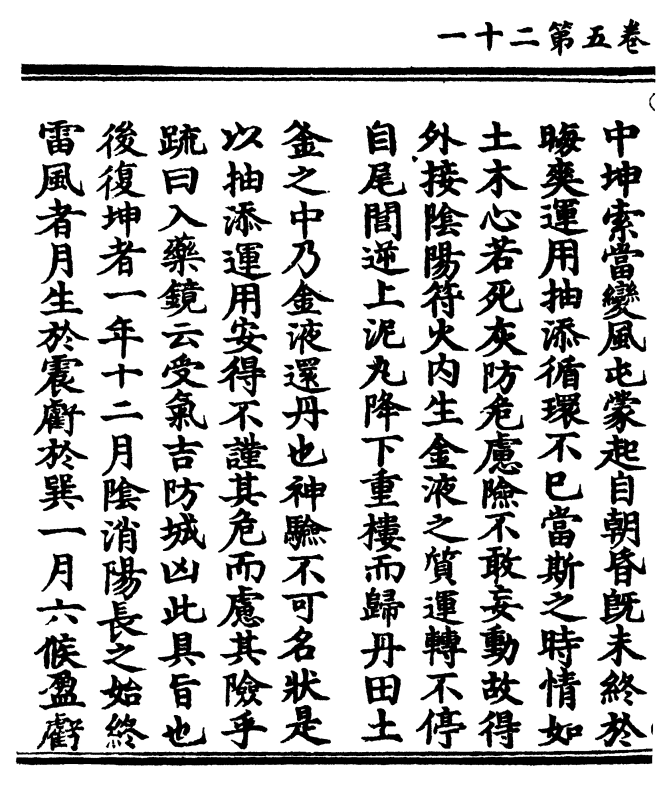 卷五第二十一
中坤索當變風屯蒙起自朝昏旣未終於
晦爽運用抽添循環不已當斯之時情如
土木心若死灰防危慮險不敢妄動故得
外接陰陽符火内生金液之質運轉不停
自尾閭逆上泥丸降下重樓而歸丹田土
釜之中乃金液還丹也神驗不可名狀是
以抽添運用安得不謹其危而慮其險乎
疏曰入藥鏡云受氣吉防城凶此具旨也
後復坤者一年十二月陰消陽長之始終
雷風者月生於震虧於巽一月六候盈虧